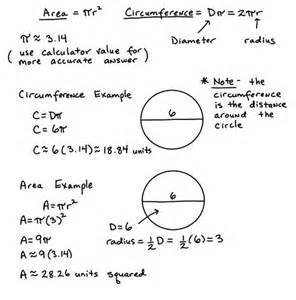 Area = πr² Circumference = Dπ = 2πr
π ≈ 3.14
Diameter radius
( use calculator value for more accurate answer )
* Note - the circumference is the distance around the circle
Circumference Example
6
C = Dπ
C = 6π
C ≈ 6(3.14) ≈ 18.84 units
Area Example
6
A = πr²
A = π(3)²
D = 6
A = 9π
radius = ½ D = ½ (6) = 3
A ≈ 9(3.14)
A ≈ 28.26 units squared